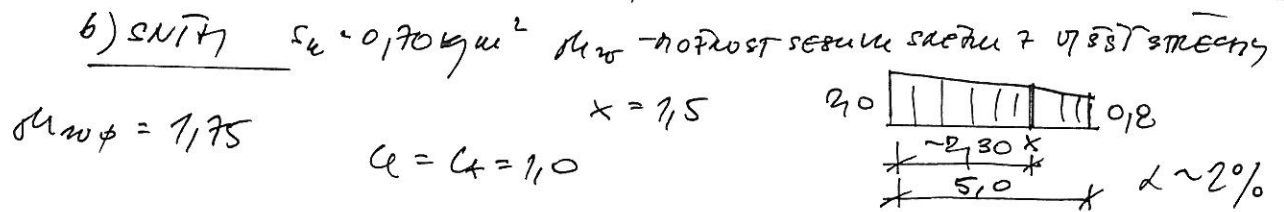 b) SNÍH sₖ = 0,70 kg m² μw - možnost sesuvu sněhu z vyšší střechy
μwφ = 1,75 x = 1,5 2,0 0,8
Ce = Ct = 1,0 ~2,30
5,0 α ~ 2%